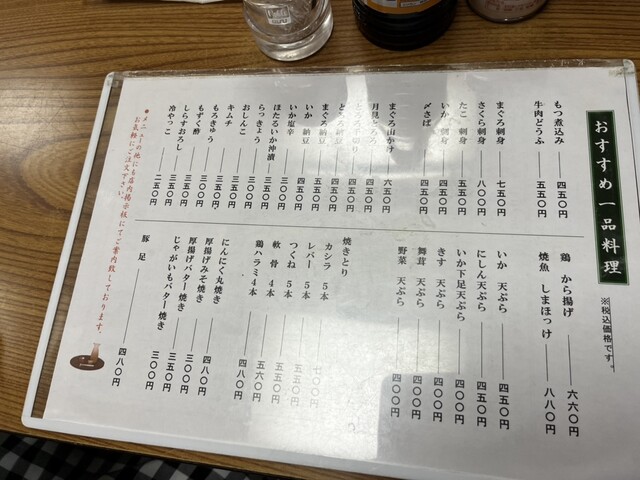 おすすめ一品料理
※税込価格です。
もつ煮込み 四五〇円
牛肉どうふ 五五〇円
まぐろ刺身 七五〇円
さくら刺身 八〇〇円
たこ 刺身 五五〇円
いか 刺身 四五〇円
〆さば 四五〇円
まぐろ山かけ 六五〇円
月見とろろ 四五〇円
まぐろ 納豆 五五〇円
いか 納豆 四五〇円
いか塩辛 三〇〇円
ほたるいか沖漬 三五〇円
らっきょう 三五〇円
おしんこ 三五〇円
キムチ 三五〇円
もろきゅう 三五〇円
もずく酢 三〇〇円
しらすおろし 三五〇円
冷やっこ 二五〇円
鶏 から揚げ 六六〇円
焼魚 しまほっけ 八八〇円
いか 天ぷら 四五〇円
にしん天ぷら 四五〇円
いか下足天ぷら 四〇〇円
きす 天ぷら 四〇〇円
舞茸 天ぷら 四〇〇円
野菜 天ぷら 四〇〇円
焼きとり
カシラ 5本
レバー 5本
つくね 5本
軟骨 4本
鶏ハラミ4本 五六〇円
にんにく丸焼き 四八〇円
厚揚げみそ焼き 四八〇円
厚揚げバター焼き 三五〇円
じゃがいもバター焼き 三〇〇円
豚足 四八〇円
●メニューの他にも店内掲示板にてご案内致しております。
お気軽にご注文下さい。